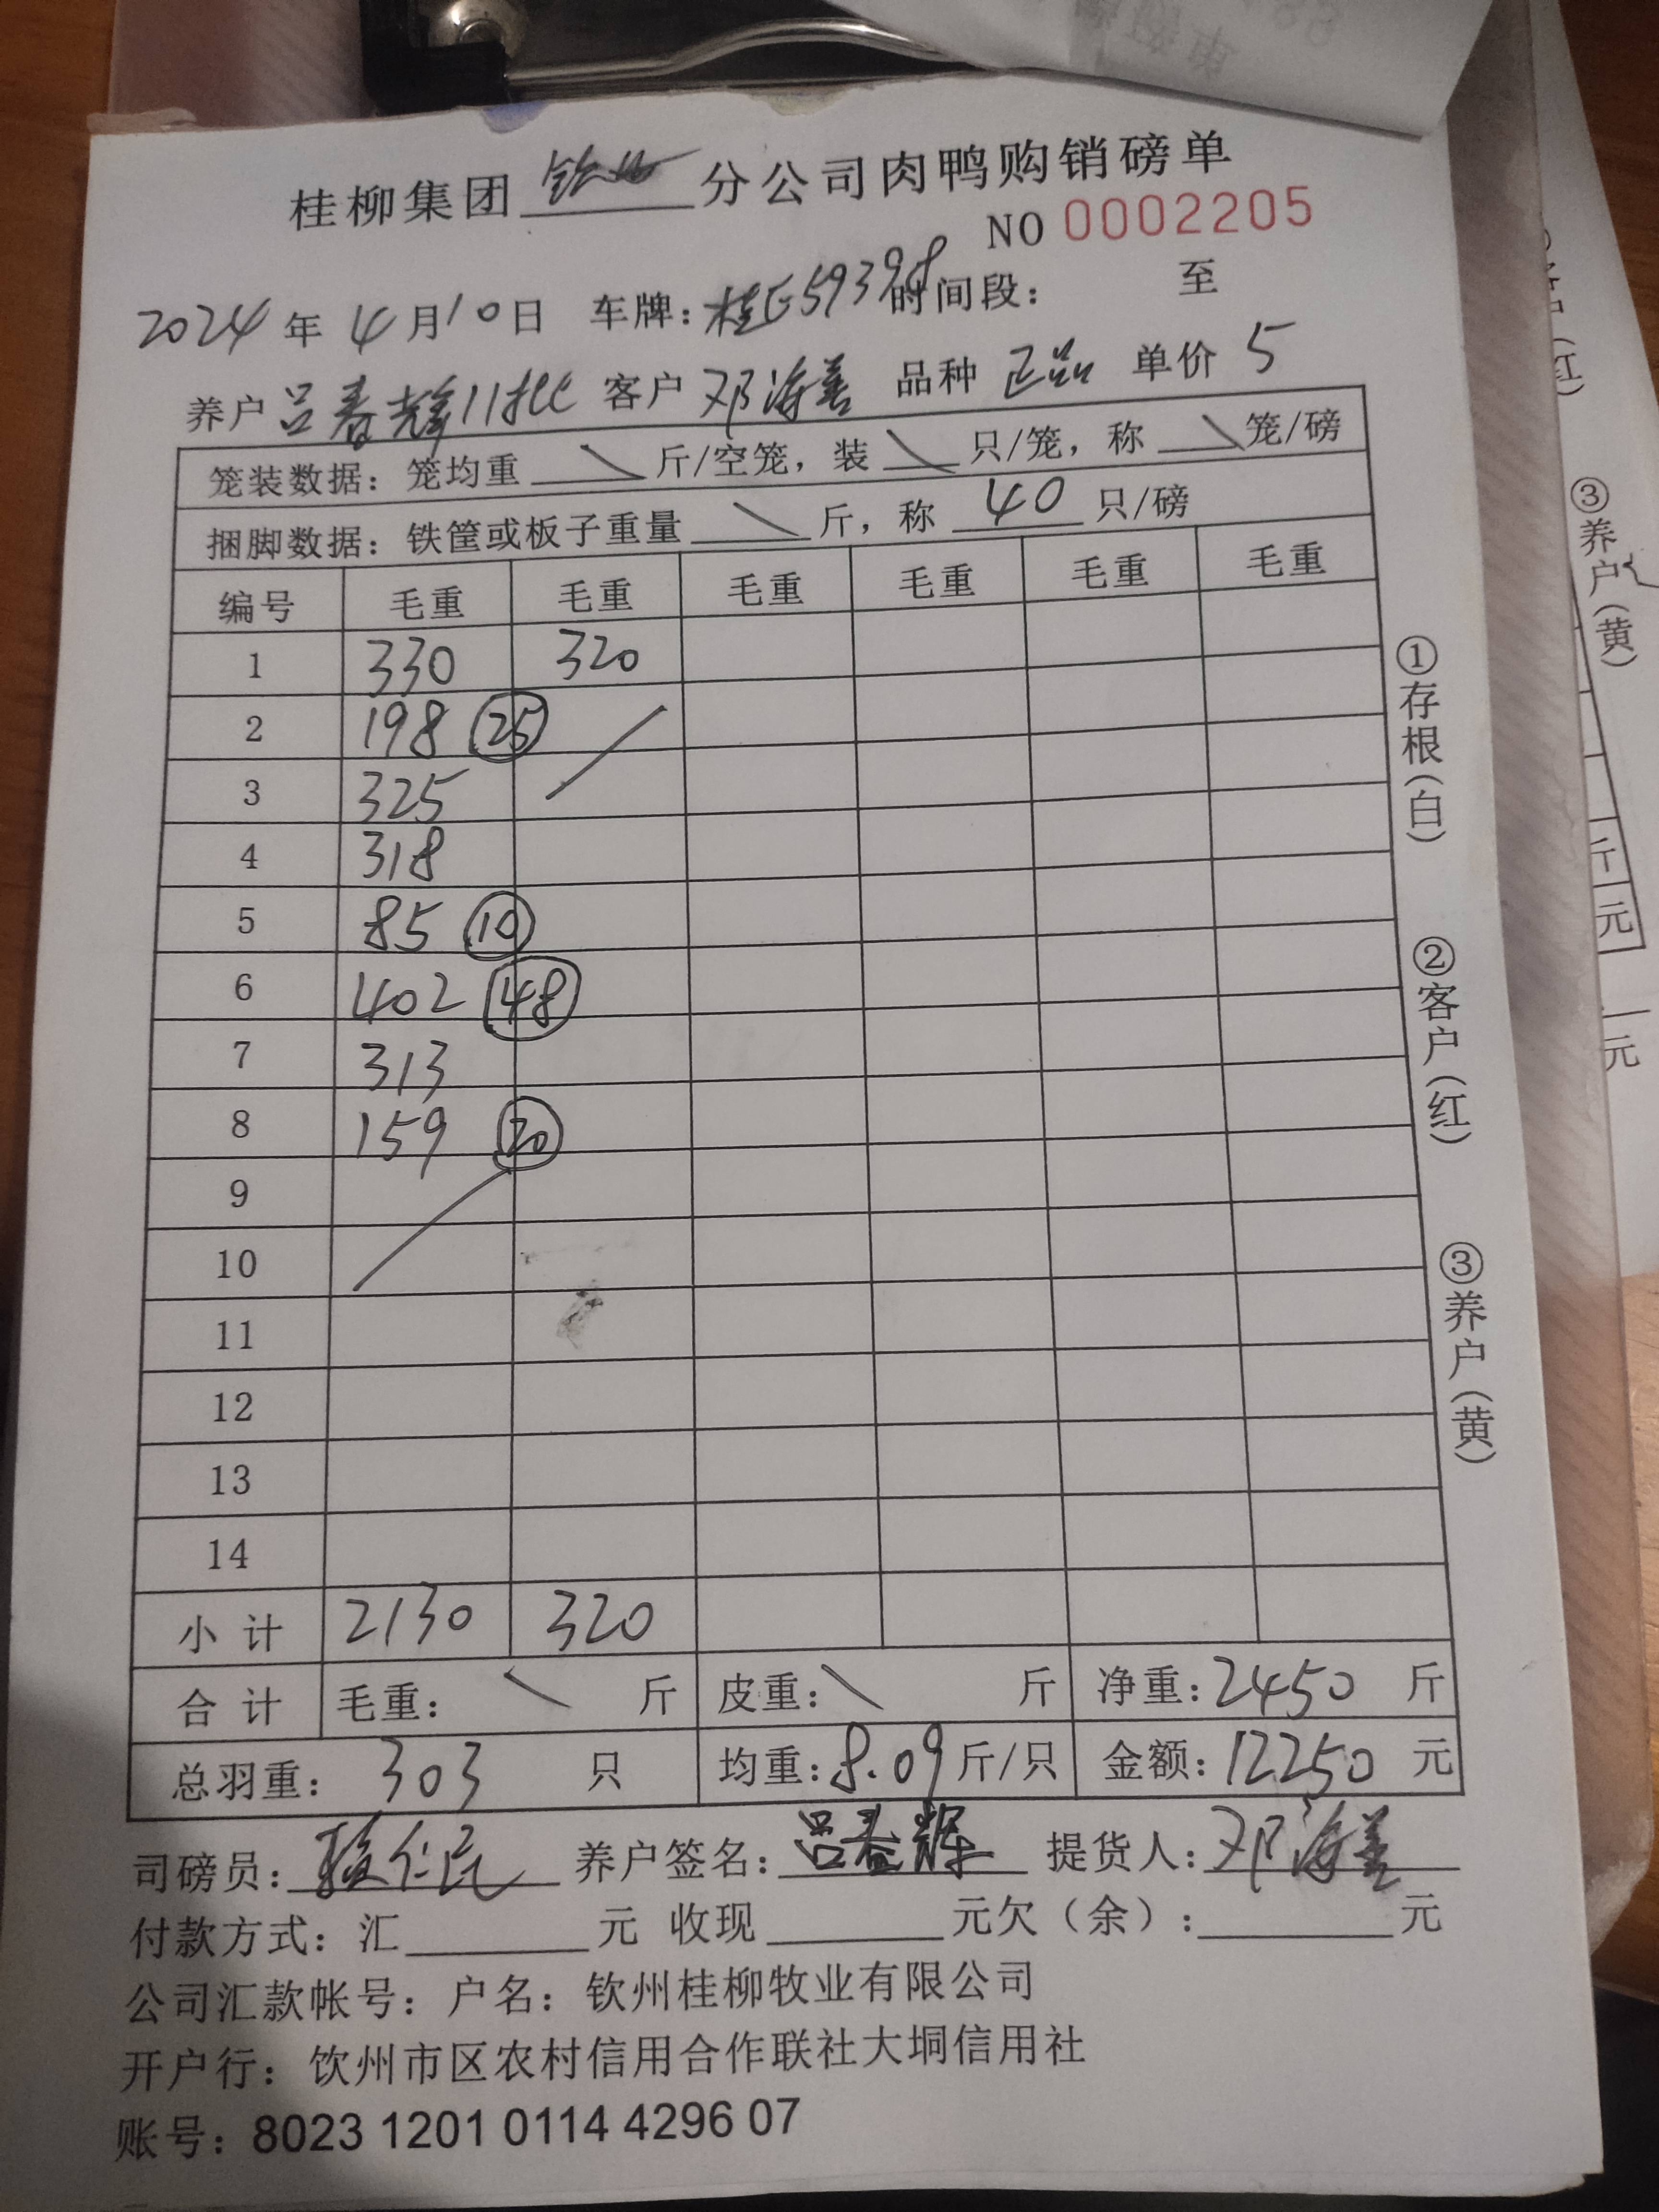 桂柳集团 钦州 分公司肉鸭购销磅单
NO 0002205
2024 年 4 月 10 日 车牌: 桂E59398 时间段: 至
养户 吕春辉11批 客户 邓海善 品种 正品 单价 5
笼装数据: 笼均重 \ 斤/空笼, 装 \ 只/笼, 称 \ 笼/磅
捆脚数据: 铁筐或板子重量 \ 斤, 称 40 只/磅
编号 毛重 毛重 毛重 毛重 毛重 毛重
1 330 320
2 198 ㉕
3 325
4 318
5 85 ⑩
6 402 ㊽
7 313
8 159 ⑳
9
10
11
12
13
14
小计 2130 320
合计 毛重: \ 斤 皮重: \ 斤 净重: 2450 斤
总羽重: 303 只 均重: 8.09 斤/只 金额: 12250 元
司磅员: 养户签名: 吕春辉 提货人: 邓海善
付款方式: 汇 元 收现 元欠(余): 元
公司汇款帐号: 户名: 钦州桂柳牧业有限公司
开户行: 钦州市区农村信用合作联社大垌信用社
账号: 8023 1201 0114 4296 07
①存根(白)
②客户(红)
③养户(黄)
③养户(黄)
斤
元
元